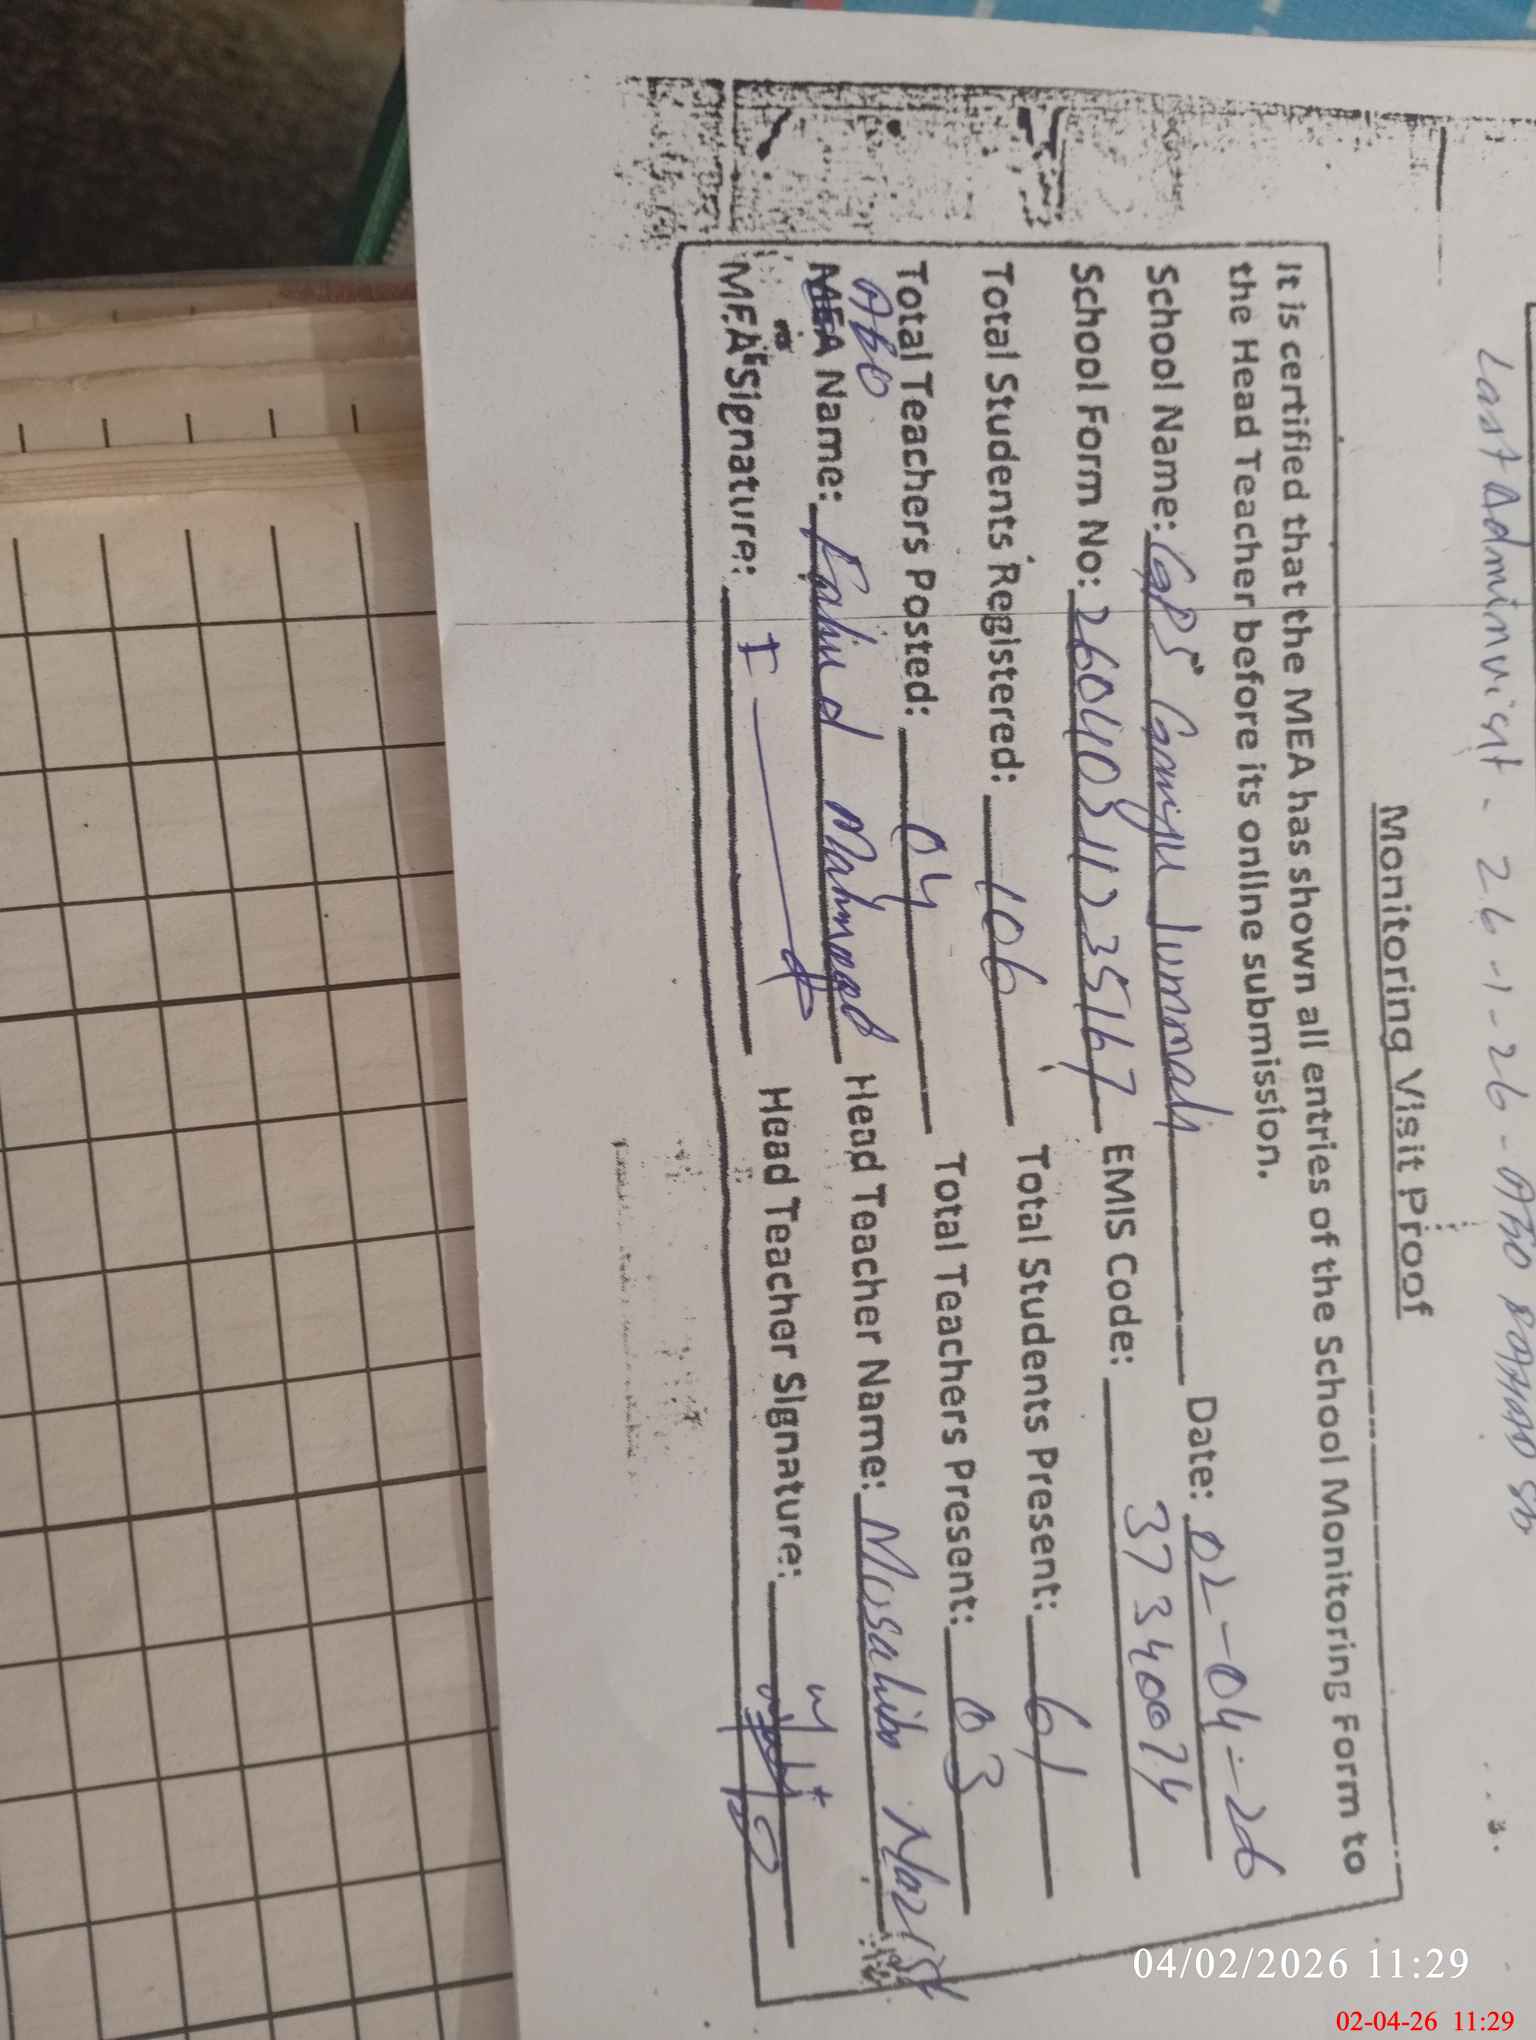 Last Admin visit - 26-1-26 - AEO
Monitoring Visit Proof
It is certified that the MEA has shown all entries of the School Monitoring Form to
the Head Teacher before its online submission.
School Name: GPS Jummah Date: 02-04-26
School Form No: EMIS Code: 37340074
Total Students Registered: 106 Total Students Present: 61
Total Teachers Posted: 04 Total Teachers Present: 03
AEO
MEA Name: Mahmood Head Teacher Name:
MEA Signature: Head Teacher Signature:
04/02/2026 11:29
02-04-26 11:29